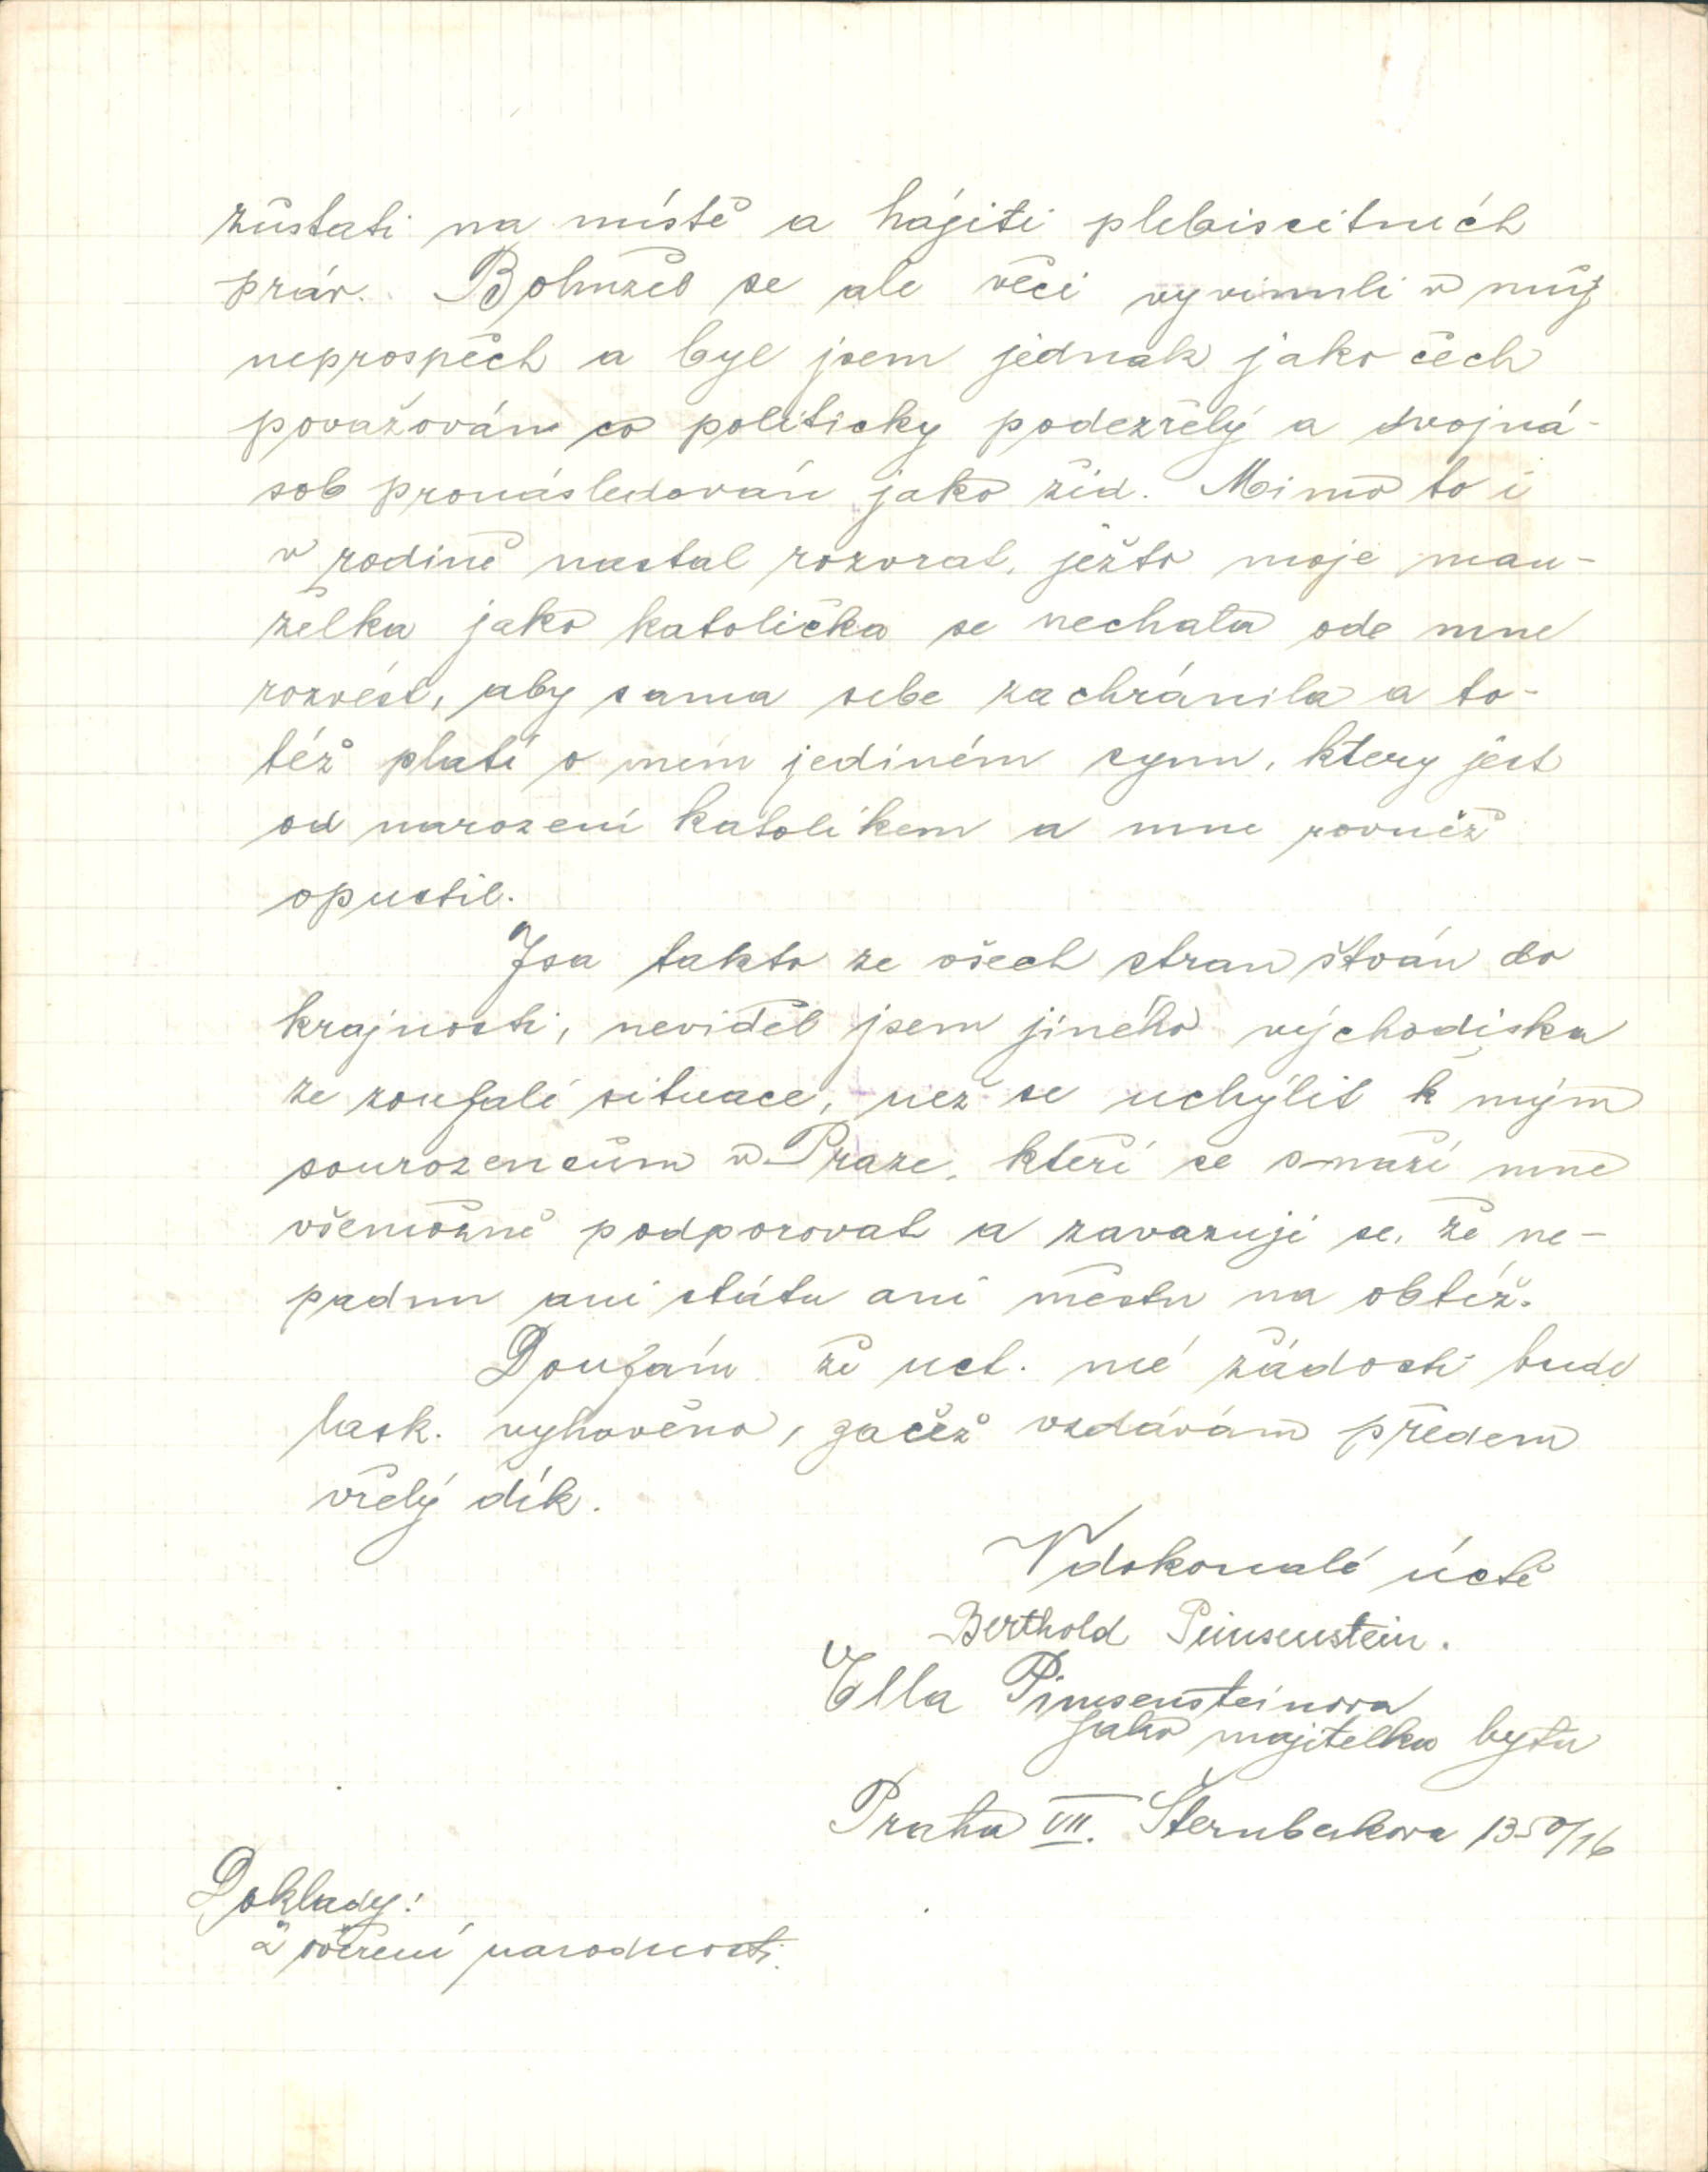 zůstati na místě a hájiti plebiscitních
práv. Bohužel se ale věci vyvinuli v můj
neprospěch a byl jsem jednak jako čech
považován co politicky podezřelý a dvojná-
sob pronásledován jako žid. Mimo to i
v rodině nastal rozvrat, ježto moje man-
želka jako katolička se nechala ode mne
rozvést, aby sama sebe zachránila a to-
též platí o mém jediném synu, který jest
od narození katolíkem a mne rovněž
opustil.
Jsa takto ze všech stran štván do
krajnosti, neviděl jsem jiného východiska
ze zoufalé situace, než se uchýlit k mým
sourozencům v Praze, kteří se snaží mne
všemožně podporovat a zavazuji se, že ne-
padnu ani státu ani městu na obtíž.
Doufám že uct. mé žádosti bude
lask. vyhověno, začež vzdávám předem
vřelý dík.
V dokonalé úctě
Berthold Pimsenstein.
Ella Pimsensteinova
jako majitelka bytu
Praha VII. Šternberkova 1350/16
Doklady:
2 ověření narodnosti.